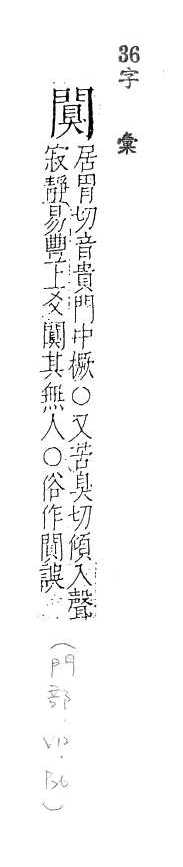 36
字彙
闃
居胃切音貴門中橛○又苦臭切傾入聲
寂靜易豐上爻闃其無人○俗作閴誤
(門部.